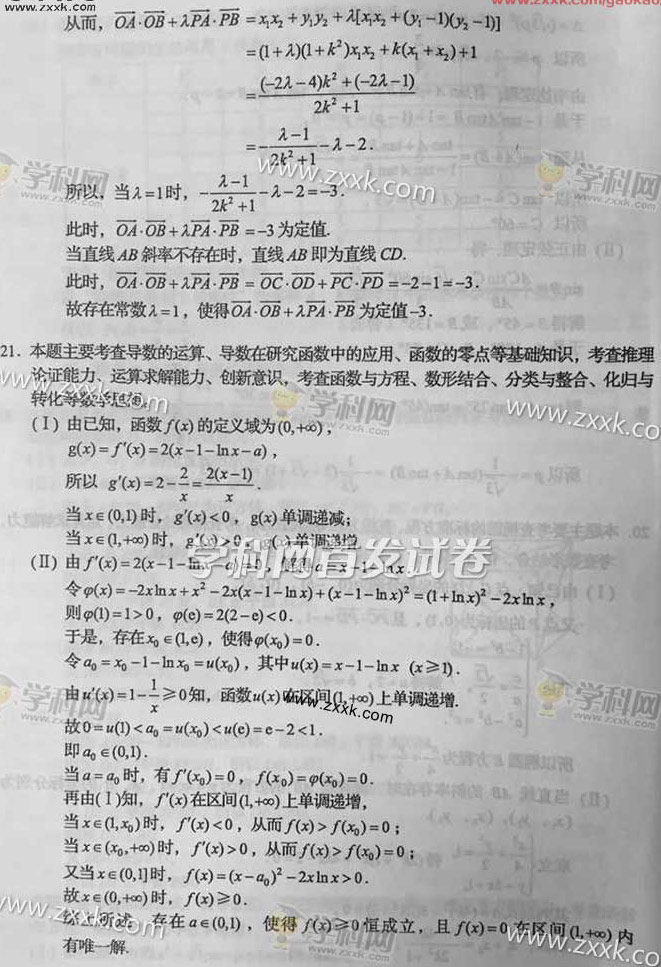 www.zxxk.com
www.zxxk.com/gaokao
从而，OA·OB+λPA·PB =x₁x₂+y₁y₂+λ[x₁x₂+(y₁-1)(y₂-1)]
=(1+λ)(1+k²)x₁x₂+k(x₁+x₂)+1
=\frac{(-2λ-4)k²+(-2λ-1)}{2k²+1}
=-\frac{λ-1}{2k²+1}-λ-2.
学科网
www.zxxk.com
学科网
所以，当λ=1时，-\frac{λ-1}{2k²+1}-λ-2=-3.
此时，OA·OB+λPA·PB=-3为定值.
当直线AB斜率不存在时，直线AB即为直线CD.
此时，OA·OB+λPA·PB=OC·OD+PC·PD=-2-1=-3.
故存在常数λ=1，使得OA·OB+λPA·PB为定值-3.
21. 本题主要考查导数的运算、导数在研究函数中的应用、函数的零点等基础知识，考查推理
论证能力、运算求解能力、创新意识，考查函数与方程、数形结合、分类与整合、化归与
转化等数学思想.
www.zxxk.com
学科网
www.zxxk.com
(Ⅰ) 由已知，函数f(x)的定义域为(0,+∞)，
g(x)=f′(x)=2(x-1-lnx-a)，
所以 g′(x)=2-\frac{2}{x}=\frac{2(x-1)}{x}.
当x∈(0,1)时，g′(x)<0，g(x)单调递减；
当x∈(1,+∞)时，g′(x)>0，g(x)单调递增.
学科网首发试卷
(Ⅱ) 由f′(x)=2(x-1-lnx-a)=0，解得a=x-1-lnx.
令φ(x)=-2xlnx+x²-2x(x-1-lnx)+(x-1-lnx)²=(1+lnx)²-2xlnx，
则φ(1)=1>0，φ(e)=2(2-e)<0.
于是，存在x₀∈(1,e)，使得φ(x₀)=0.
令a₀=x₀-1-lnx₀=u(x₀)，其中u(x)=x-1-lnx (x≥1).
由u′(x)=1-\frac{1}{x}≥0知，函数u(x)在区间(1,+∞)上单调递增.
学科网
www.zxxk.com
学科网
故0=u(1)<a₀=u(x₀)<u(e)=e-2<1.
即a₀∈(0,1).
当a=a₀时，有f′(x₀)=0，f(x₀)=φ(x₀)=0.
再由(Ⅰ)知，f′(x)在区间(1,+∞)上单调递增，
当x∈(1,x₀)时，f′(x)<0，从而f(x)>f(x₀)=0；
当x∈(x₀,+∞)时，f′(x)>0，从而f(x)>f(x₀)=0；
又当x∈(0,1]时，f(x)=(x-a₀)²-2xlnx>0.
故x∈(0,+∞)时，f(x)≥0.
综上所述，存在a∈(0,1)，使得f(x)≥0恒成立，且f(x)=0在区间(1,+∞)内
有唯一解.
www.zxxk.com
学科网
www.zxxk.com